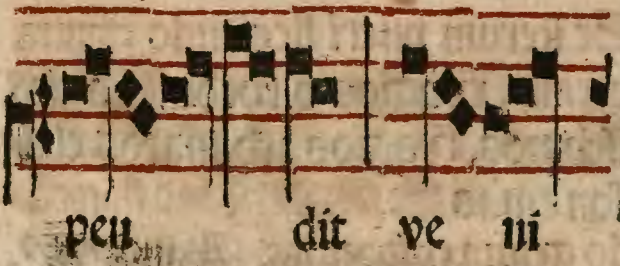 peu dit ve ni